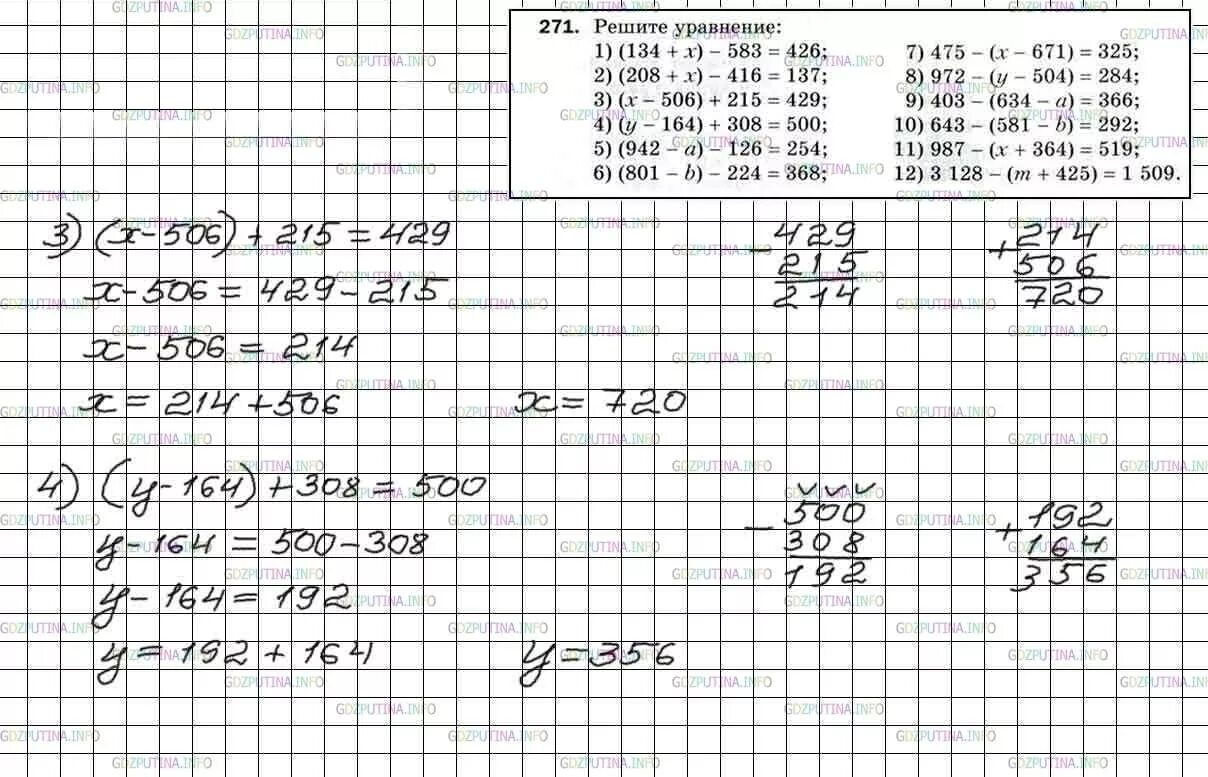 271. Решите уравнение:
1) (134 + x) − 583 = 426;
2) (208 + x) − 416 = 137;
3) (x − 506) + 215 = 429;
4) (y − 164) + 308 = 500;
5) (942 − a) − 126 = 254;
6) (801 − b) − 224 = 368;
7) 475 − (x − 671) = 325;
8) 972 − (y − 504) = 284;
9) 403 − (634 − a) = 366;
10) 643 − (581 − b) = 292;
11) 987 − (x + 364) = 519;
12) 3 128 − (m + 425) = 1 509.
3) (x − 506) + 215 = 429
x − 506 = 429 − 215
x − 506 = 214
x = 214 + 506
x = 720
− 429
215
214
+ 214
506
720
4) (y − 164) + 308 = 500
y − 164 = 500 − 308
y − 164 = 192
y = 192 + 164
y = 356
− 500
308
192
+ 192
164
356
GDZPUTINA.INFO